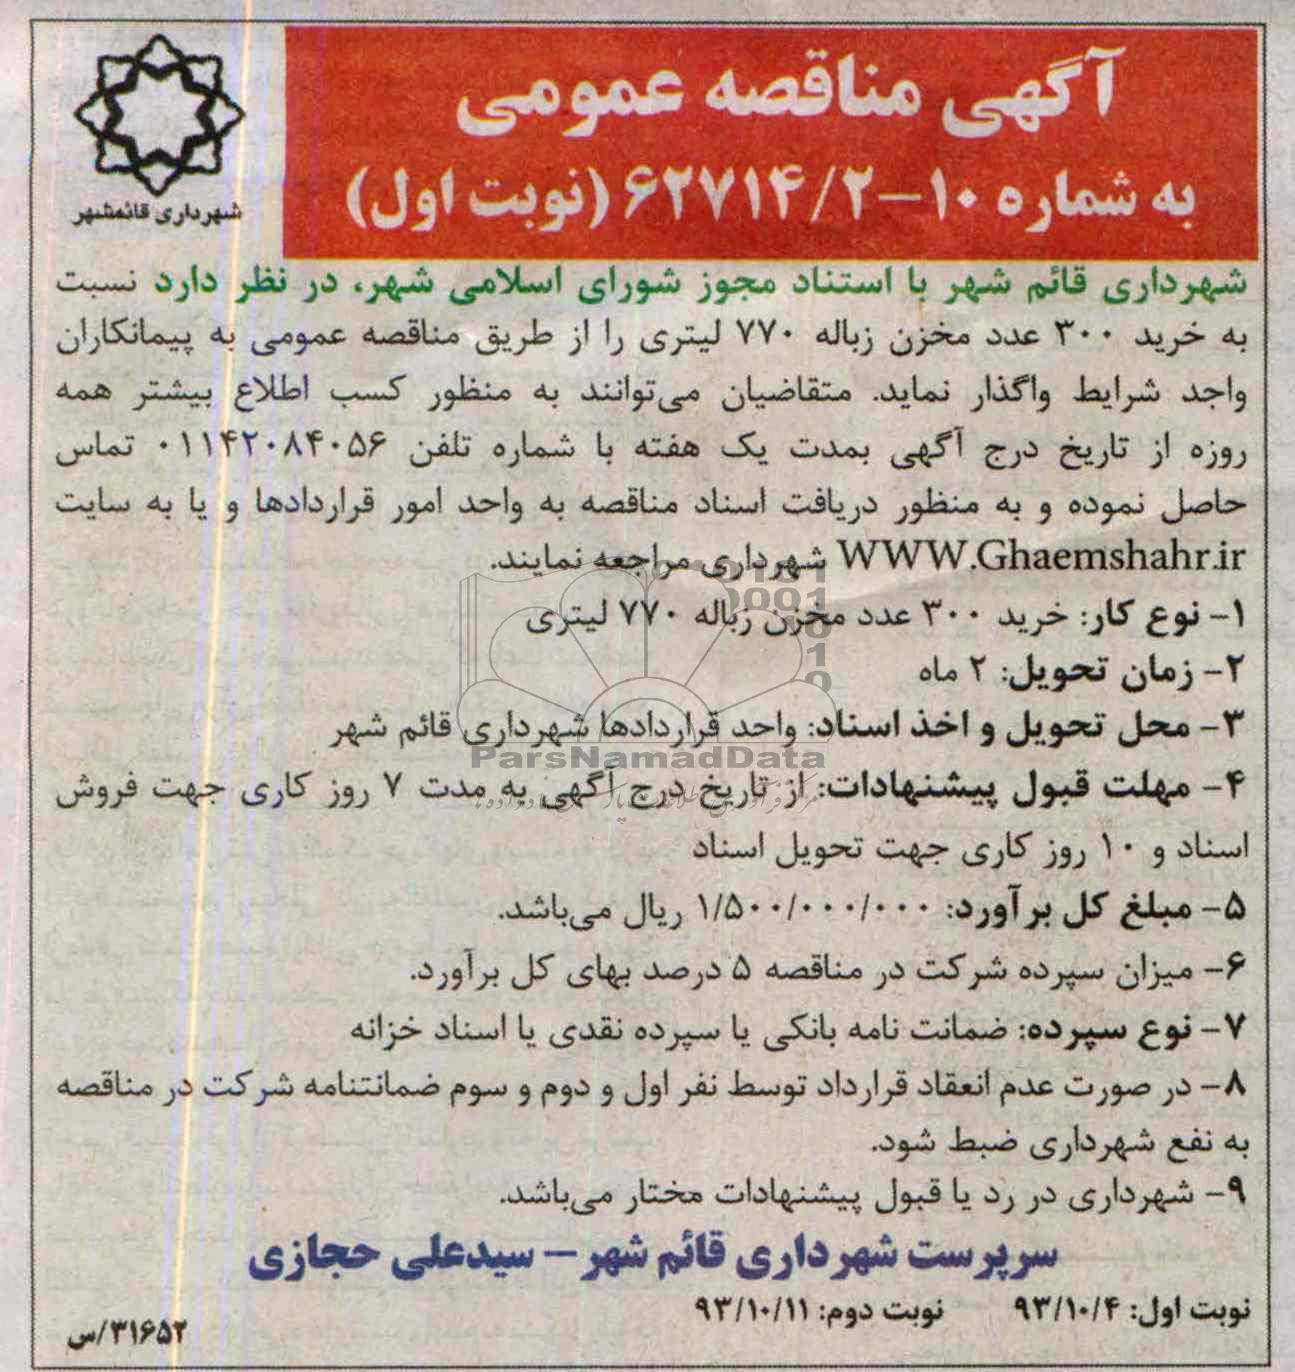 آگهی مناقصه عمومی
به شماره ۱۰-۶۲۷۱۴/۲ (نوبت اول)
شهرداری قائمشهر
شهرداری قائم شهر با استناد مجوز شورای اسلامی شهر، در نظر دارد نسبت
به خرید ۳۰۰ عدد مخزن زباله ۷۷۰ لیتری را از طریق مناقصه عمومی به پیمانکاران
واجد شرایط واگذار نماید. متقاضیان می‌توانند به منظور کسب اطلاع بیشتر همه
روزه از تاریخ درج آگهی بمدت یک هفته با شماره تلفن ۰۱۱۴۲۰۸۴۰۵۶ تماس
حاصل نموده و به منظور دریافت اسناد مناقصه به واحد امور قراردادها و یا به سایت
WWW.Ghaemshahr.ir شهرداری مراجعه نمایند.
۱- نوع کار: خرید ۳۰۰ عدد مخزن زباله ۷۷۰ لیتری
۲- زمان تحویل: ۲ ماه
۳- محل تحویل و اخذ اسناد: واحد قراردادها شهرداری قائم شهر
ParsNamadData
۴- مهلت قبول پیشنهادات: از تاریخ درج آگهی به مدت ۷ روز کاری جهت فروش
اسناد و ۱۰ روز کاری جهت تحویل اسناد
۵- مبلغ کل برآورد: ۱/۵۰۰/۰۰۰/۰۰۰ ریال می‌باشد.
۶- میزان سپرده شرکت در مناقصه ۵ درصد بهای کل برآورد.
۷- نوع سپرده: ضمانت نامه بانکی یا سپرده نقدی یا اسناد خزانه
۸- در صورت عدم انعقاد قرارداد توسط نفر اول و دوم و سوم ضمانتنامه شرکت در مناقصه
به نفع شهرداری ضبط شود.
۹- شهرداری در رد یا قبول پیشنهادات مختار می‌باشد.
سرپرست شهرداری قائم شهر – سیدعلی حجازی
نوبت اول: ۹۳/۱۰/۴ نوبت دوم: ۹۳/۱۰/۱۱
۳۱۶۵۲/س